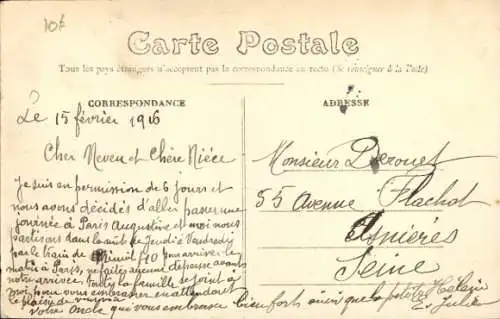 10f
Carte Postale
Tous les pays étrangers n'acceptent pas la correspondance au recto (Se renseigner à la Poste)
CORRESPONDANCE
Le 15 février 1916
Cher Neveu et Chère Nièce
Je suis en permission de 6 jours et
nous avons décidés d'aller passer une
journée à Paris Augustine et moi nous
partirons dans la nuit de Jeudi à Vendredi
par le train de minuit 40 pour arriver le
matin à Paris, ne faites aucune dépense avant
notre arrivée. Toute la famille se joint à
moi pour vous embrasser en attendant
le plaisir de vous voir
Votre Oncle qui vous embrasse bien fort ainsi que la petite
ADRESSE
Monsieur Derouet
55 Avenue Flachat
Asnières
Seine